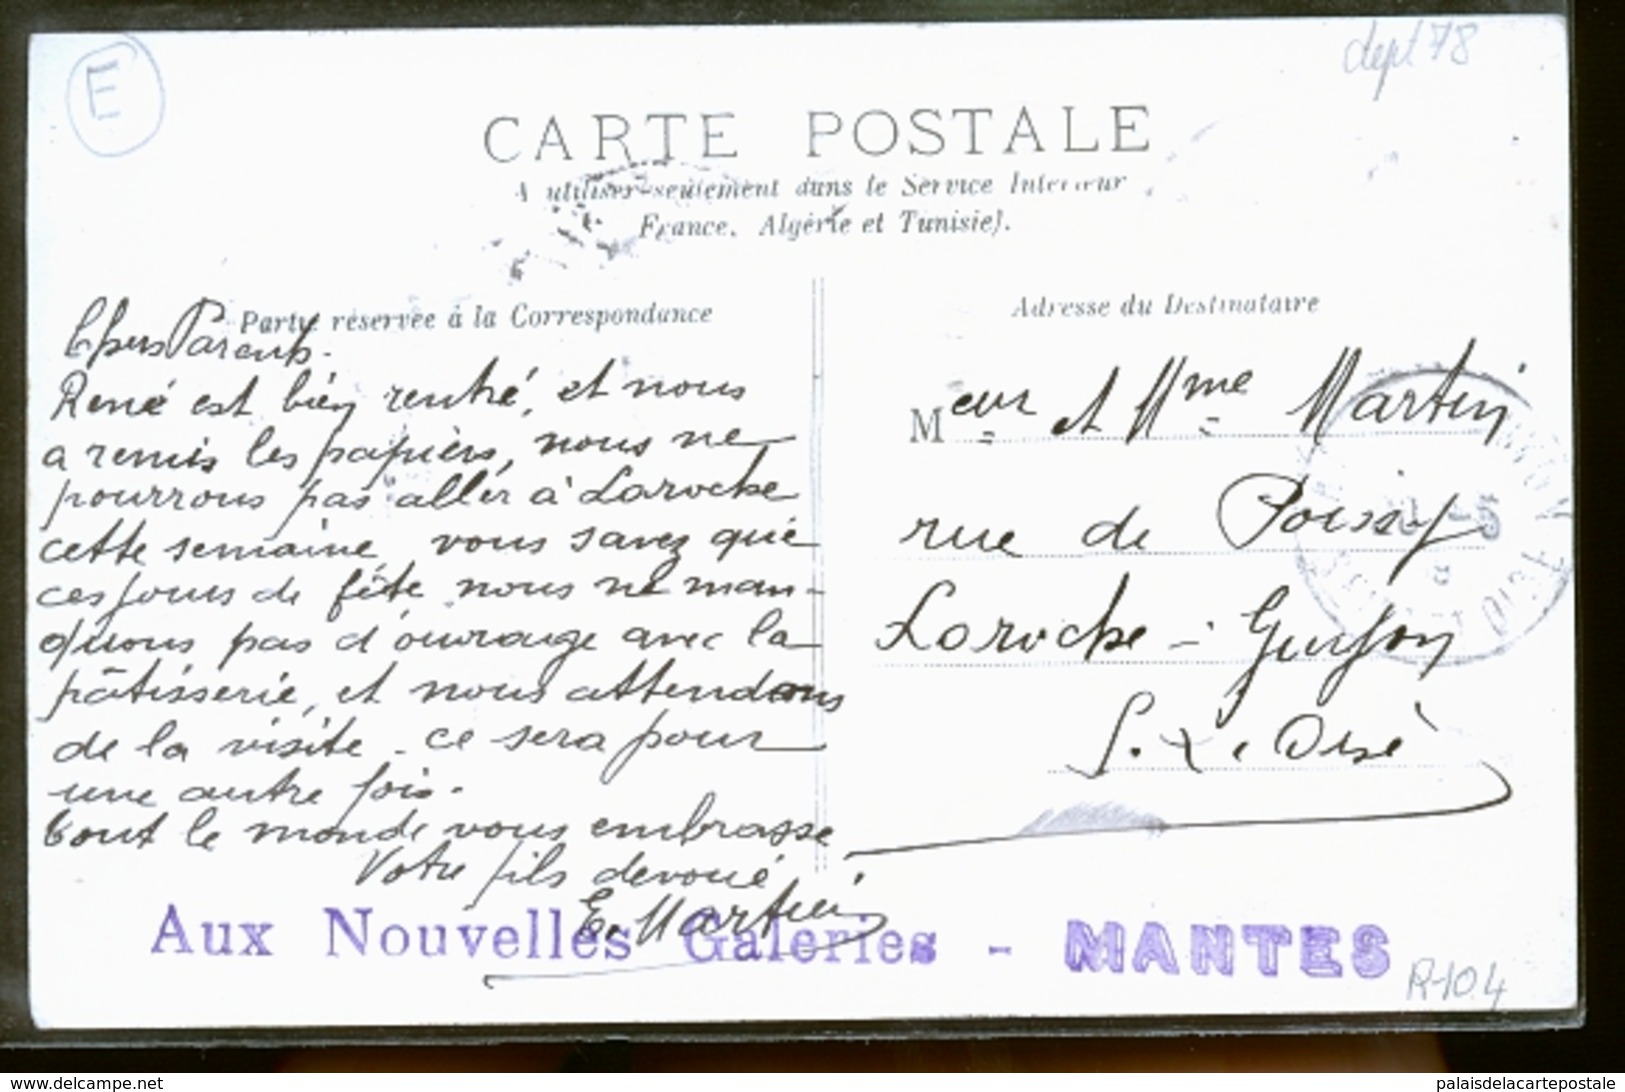 E
dept 78
CARTE POSTALE
A utiliser seulement dans le Service Intérieur
France, Algérie et Tunisie).
Partie réservée à la Correspondance
Adresse du Destinataire
Chers Parents.
René est bien rentré, et nous
a remis les papiers, nous ne
pourrons pas aller à Laroche
cette semaine, vous savez que
ces jours de fête nous ne man-
quons pas d'ouvrage avec la
pâtisserie, et nous attendons
de la visite. ce sera pour
une autre fois.
tout le monde vous embrasse
Votre fils dévoué
E. Martin
Meur et Mme Martin
rue de Poissy
Laroche-Guyon
S. & Oise
Aux Nouvelles Galeries - MANTES
R-104
www.delcampe.net
palaisdelacartepostale